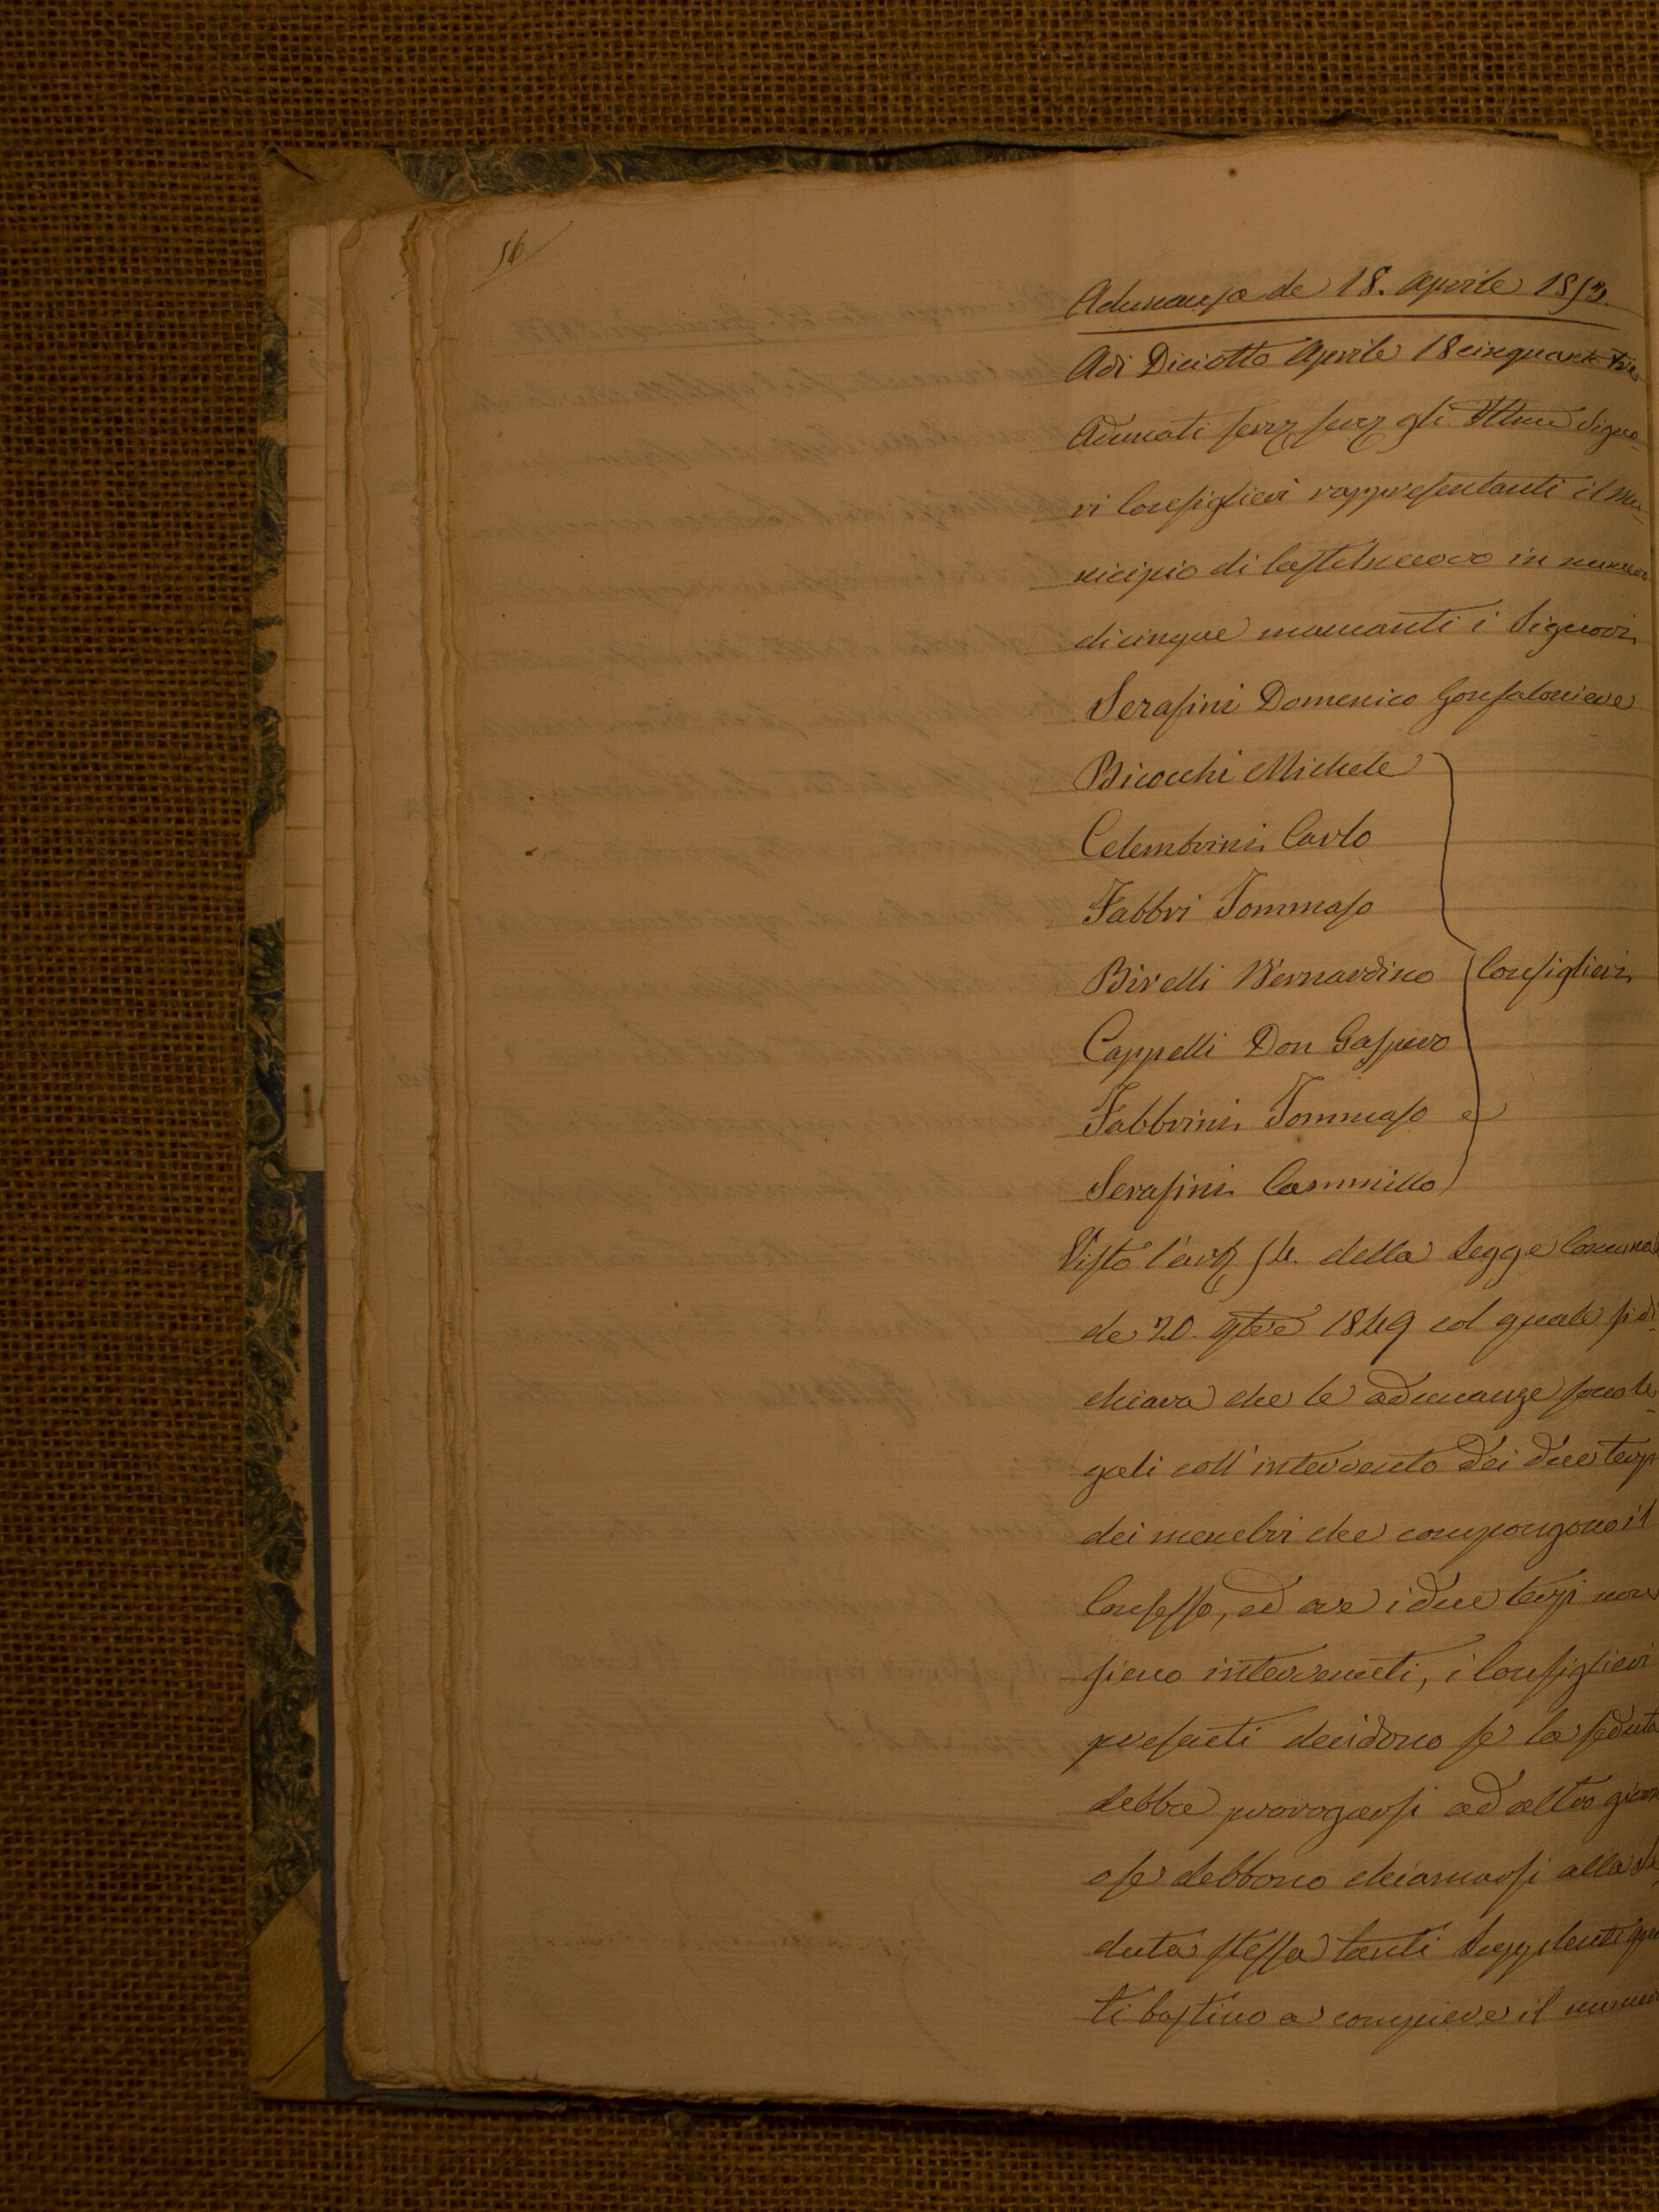 56
Adunanza de 18. Aprile 1853.
Adi Diciotto Aprile 18cinquanta tre
Adunati serv serv gli Illmi Signo-
ri Consiglieri rappresentanti il Mu-
nicipio di Castelnuovo in numero
di cinque mancanti i Signori
Serafini Domenico Gonfaloniere
Bicocchi Michele
Celembrini Carlo
Fabbri Tommaso
Birelli Bernardino Consiglieri
Cappelli Don Gaspero
Fabbrini Tommaso e
Serafini Cammillo
Visto l'art 54. della Legge Comuna
de 20. 9bre 1849 col quale si di-
chiara che le adunanze sono le-
gali coll'intervento dei due terzi
dei menbri che compongono il
Consesso, ed ove i due terzi non
sieno intervenuti, i Consiglieri
presenti decidono se la seduta
debba prorogarsi ad altro giorn
o se debbono chiamarsi alla Se
duta stessa tanti Supplenti quan
ti bastino a compiere il numer